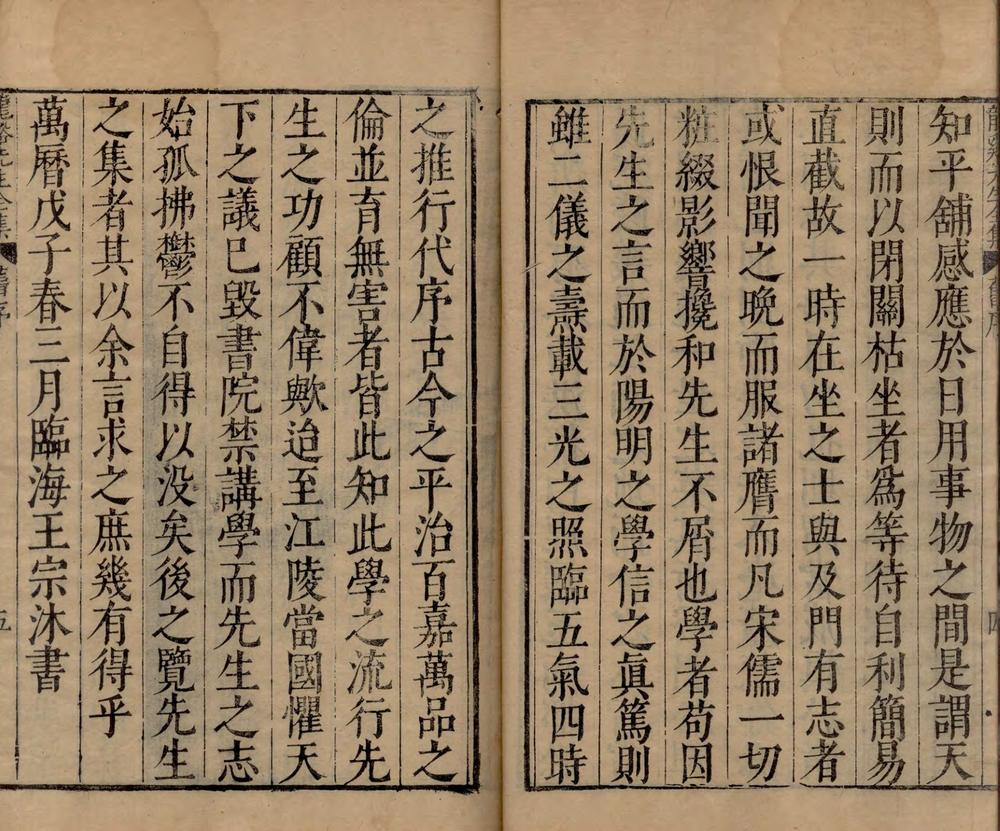 知平舖感應於日用事物之間是謂天
則而以閉關枯坐者爲等待自利簡易
直截故一時在坐之士與及門有志者
或恨聞之晚而服諸膺而凡宋儒一切
粧綴影響攙和先生不屑也學者苟因
先生之言而於陽明之學信之眞篤則
雖二儀之燾載三光之照臨五氣四時
四
之推行代序古今之平治百嘉萬品之
倫並育無害者皆此知此學之流行先
生之功顧不偉歟迨至江陵當國懼天
下之議巳毀書院禁講學而先生之志
始孤拂鬱不自得以没矣後之覽先生
之集者其以余言求之庶幾有得乎
萬曆戊子春三月臨海王宗沐書
龍谿先生全集
舊序
五